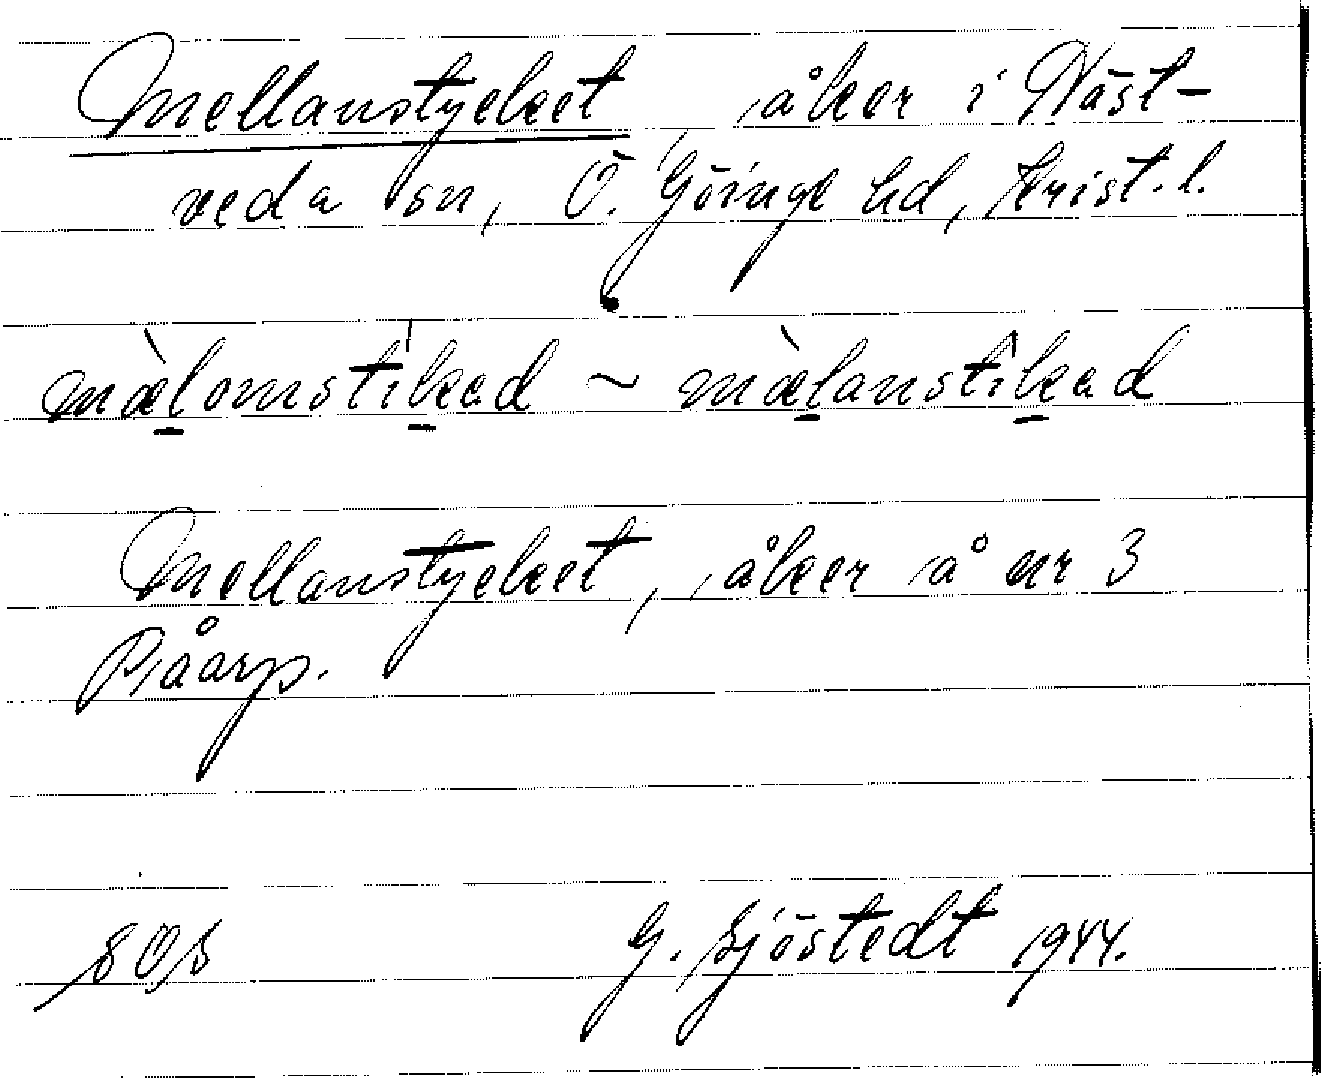 Mellanstycket, åker i Näst-
veda sn, Ö. Göinge hd, Krist. l.
mæ̀lomstikad ~ mæ̀lanstikad
Mellanstycket, åker å nr 3
Pråarp.
G. Sjöstedt 1944.